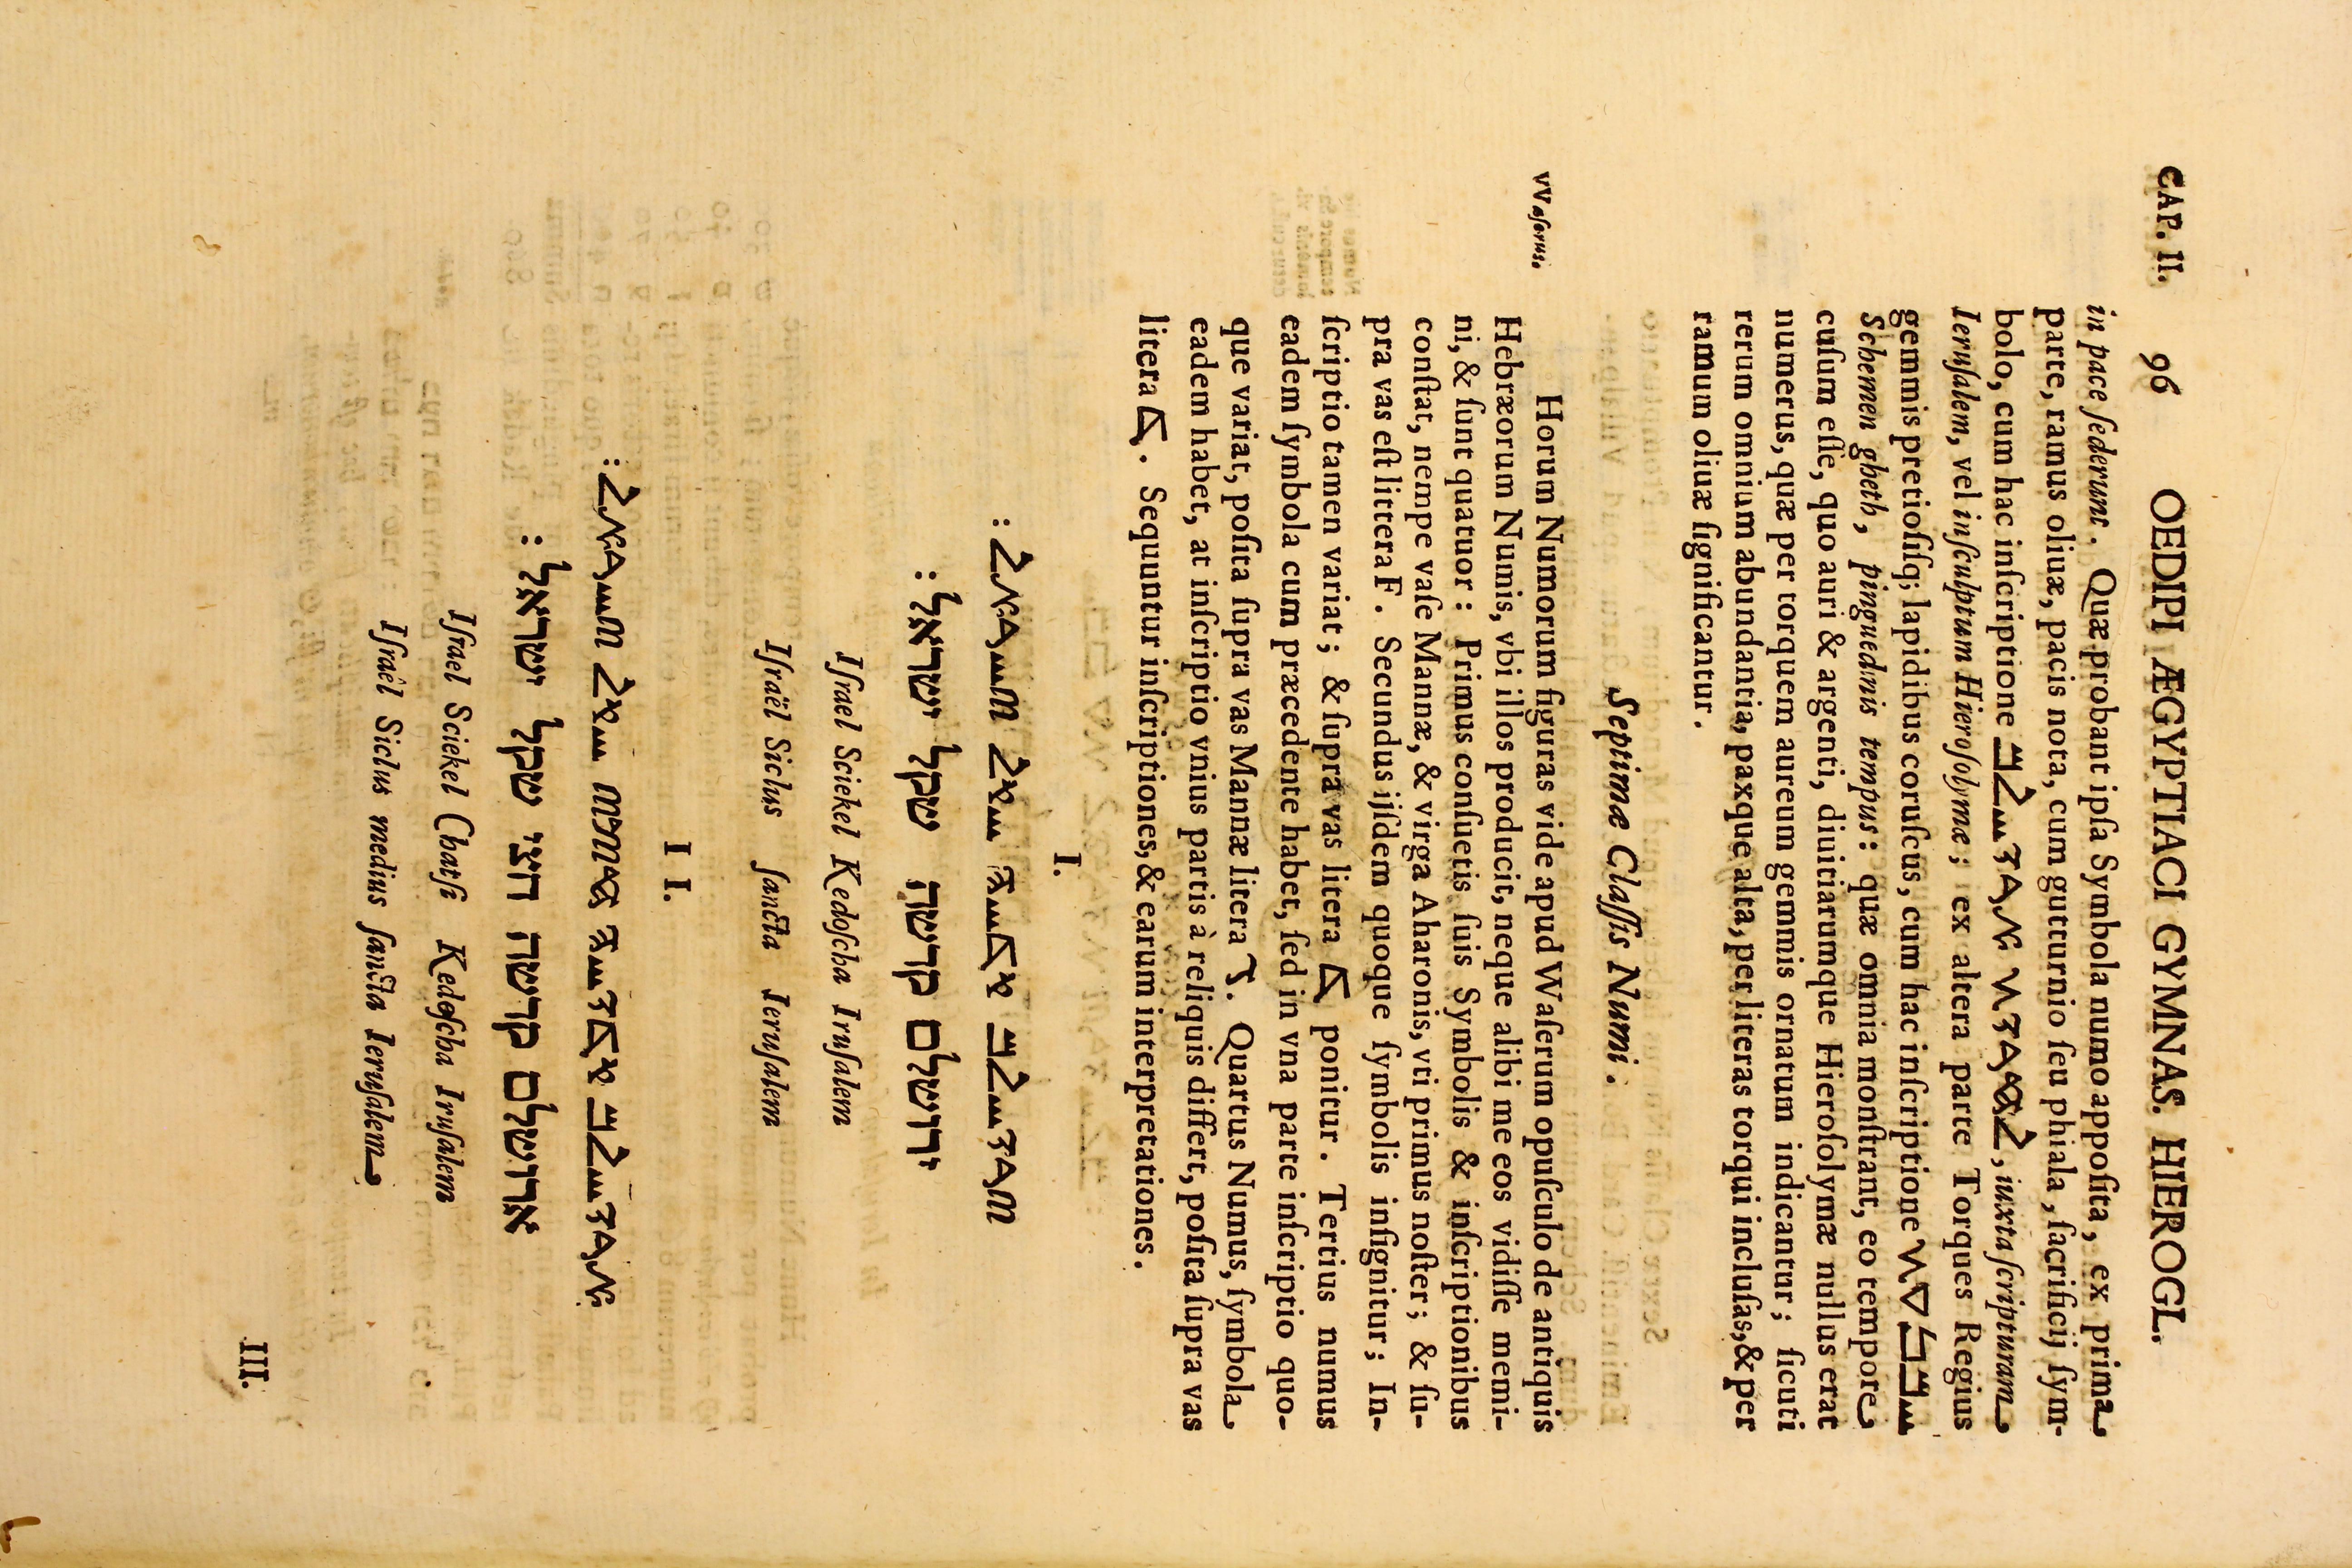 CAP. II. 96 OEDIPI ÆGYPTIACI GYMNAS. HIEROGL.
in pace ſederunt. Quæ probant ipſa Symbola numo appoſita, ex prima
parte, ramus oliuæ, pacis nota, cum gutturnio ſeu phiala, ſacrificij ſym-
bolo, cum hac inſcriptione ࠋࠇࠓࠅࠕ ࠀࠓࠅࠔࠋࠌ, iuxta ſcripturam
Ieruſalem, vel inſculptum Hieroſolymæ; ex altera parte Torques Regius
gemmis pretioſiſq; lapidibus coruſcus, cum hac inſcriptione ࠔࠌࠍࠏࠕ
Schemen gheth, pinguedinis tempus: quæ omnia monſtrant, eo tempore
cuſum eſſe, quo auri & argenti, diuitiarumque Hieroſolymæ nullus erat
numerus, quæ per torquem aureum gemmis ornatum indicantur; ſicuti
rerum omnium abundantia, paxque alta, per literas torqui incluſas, & per
ramum oliuæ ſignificantur.
Septimæ Claſſis Numi.
VVaſerus.
Horum Numorum figuras vide apud Waſerum opuſculo de antiquis
Hebræorum Numis, vbi illos producit, neque alibi me eos vidiſſe memi-
ni, & ſunt quatuor: Primus conſuetis ſuis Symbolis & inſcriptionibus
conſtat, nempe vaſe Mannæ, & virga Aharonis, vti primus noſter; & ſu-
pra vas eſt littera F. Secundus ijſdem quoque ſymbolis inſignitur; In-
ſcriptio tamen variat; & ſupra vas litera ࠃ ponitur. Tertius numus
eadem ſymbola cum præcedente habet, ſed in vna parte inſcriptio quo-
que variat, poſita ſupra vas Mannæ litera ࠂ. Quartus Numus, ſymbola
eadem habet, at inſcriptio vnius partis à reliquis differt, poſita ſupra vas
litera ࠃ. Sequuntur inſcriptiones, & earum interpretationes.
I.
ࠉࠓࠅࠔࠋࠌ ࠒࠃࠔࠄ ࠔࠒࠋ ࠉࠔࠓࠀࠋ :
ירושלם קדשה שקל ישראל :
Iſrael Sciekel Kedoſcha Iruſalem
Iſraël Siclus ſancta Ieruſalem
II.
ࠀࠓࠅࠔࠋࠌ ࠒࠃࠔࠄ ࠇࠑࠉ ࠔࠒࠋ ࠉࠔࠓࠀࠋ :
ארושלם קדשה חצי שקל ישראל :
Iſrael Sciekel Chatſi Kedoſcha Iruſalem
Iſraêl Siclus medius ſancta Ieruſalem
III.